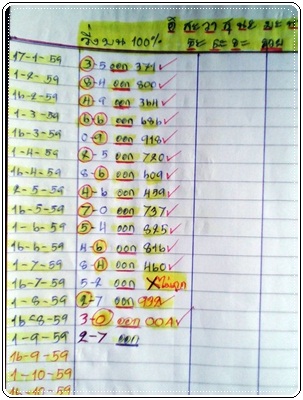 วิ่งบน 100%
17-1-59 3-5 ออก 371
1-2-59 8-4 ออก 800
16-2-59 4-9 ออก 364
1-3-59 6-6 ออก 686
16-3-59 0-9 ออก 918
1-4-59 2-5 ออก 720
16-4-59 8-6 ออก 609
2-5-59 4-6 ออก 459
16-5-59 7-0 ออก 737
1-6-59 5-4 ออก 825
16-6-59 4-6 ออก 816
1-7-59 8-4 ออก 460
16-7-59 5-2 ออก
1-8-59 2-7 ออก
16-8-59 3-0 ออก 004
1-9-59 2-7 ออก
16-9-59
1-10-59
16-10-59